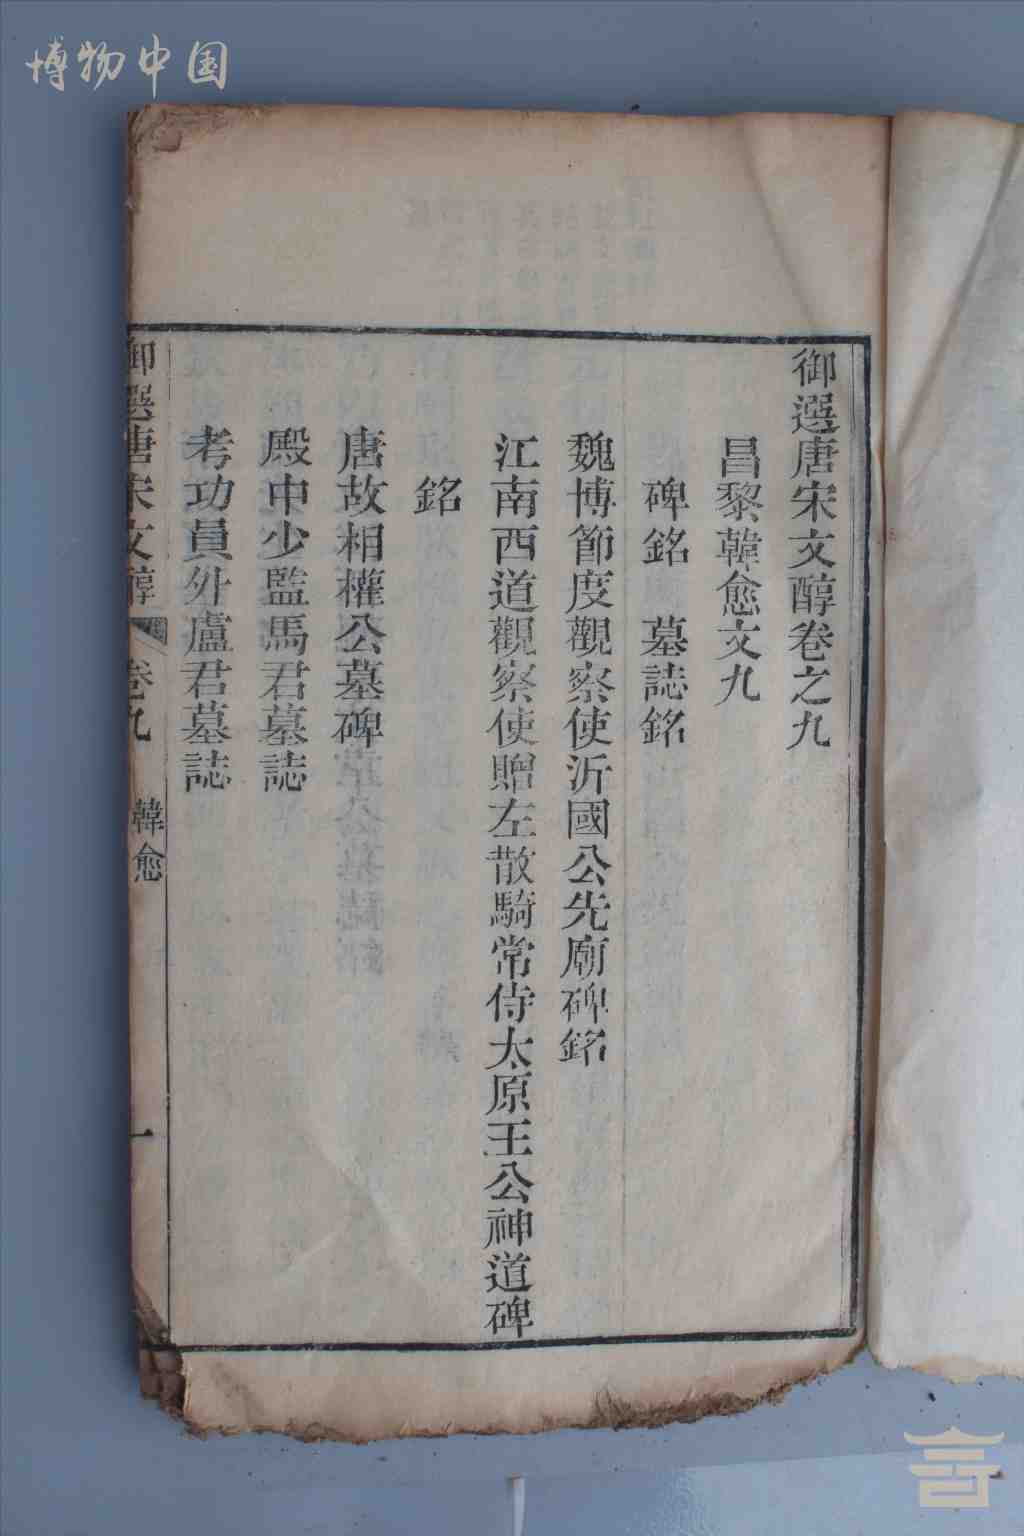 博物中国
御選唐宋文醇卷之九
昌黎韓愈文九
碑銘 墓誌銘
魏博節度觀察使沂國公先廟碑銘
江南西道觀察使贈左散騎常侍太原王公神道碑
銘
唐故相權公墓碑
殿中少監馬君墓誌
考功員外盧君墓誌
御選唐宋文醇 卷九 韓愈 一